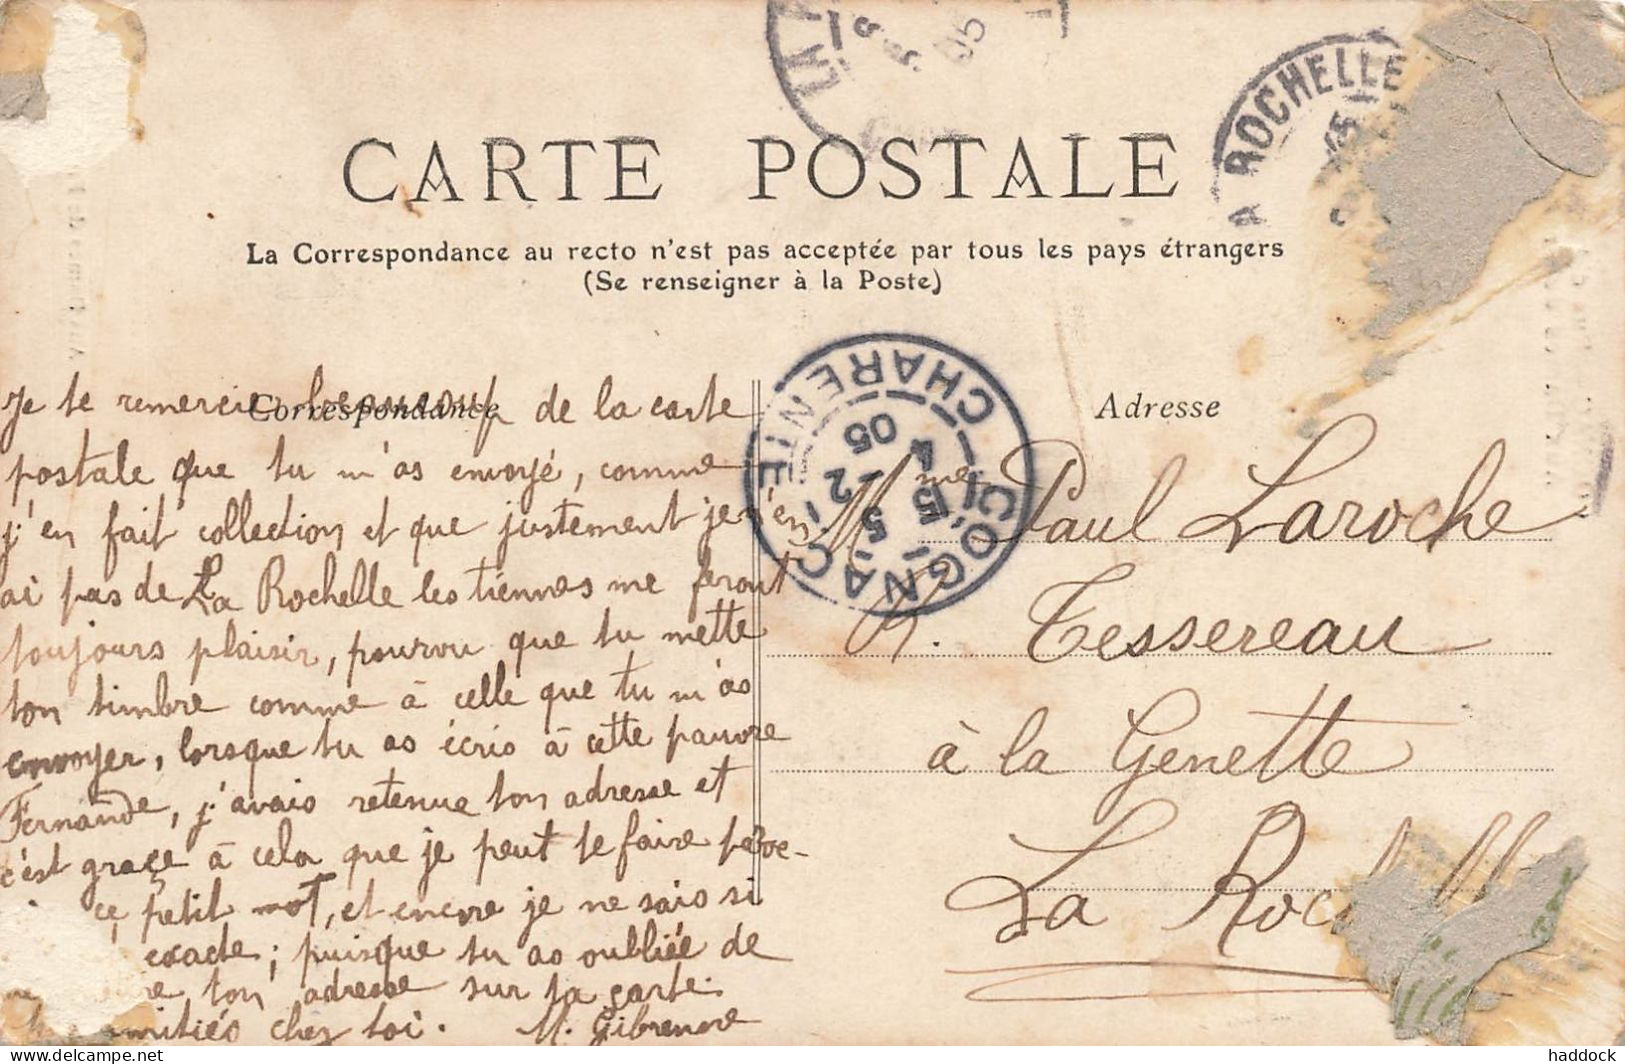 CARTE POSTALE
La Correspondance au recto n'est pas acceptée par tous les pays étrangers
(Se renseigner à la Poste)
A ROCHELLE
COGNAC
CHARENTE
15
5 - 2
4
05
Correspondance
Je te remercie beaucoup de la carte
postale que tu m'as envoyé, comme
j'en fait collection et que justement je n'en
ai pas de La Rochelle les tiennes me feront
toujours plaisir, pourvu que tu mette
ton timbre comme à celle que tu m'as
envoyer, lorsque tu as écris à cette pauvre
Fernande, j'avais retenue ton adresse et
c'est graçe à cela que je peut te faire
çe petit mot, et encore je ne sais si
exacte; puisque tu as oubliée de
ton adresse sur ta carte.
amitiés chez toi. M. Gibrenore
Adresse
Mme Paul Laroche
R. Tessereau
à la Genette
La Rochelle
delcampe.net
haddock